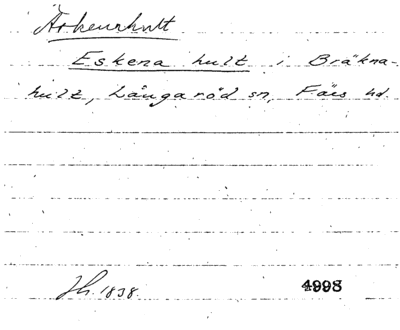 Askenhult
Eskena hult i Bräkna-
hult, Långaröd sn, Färs hd.
Jh. 1838.
4998